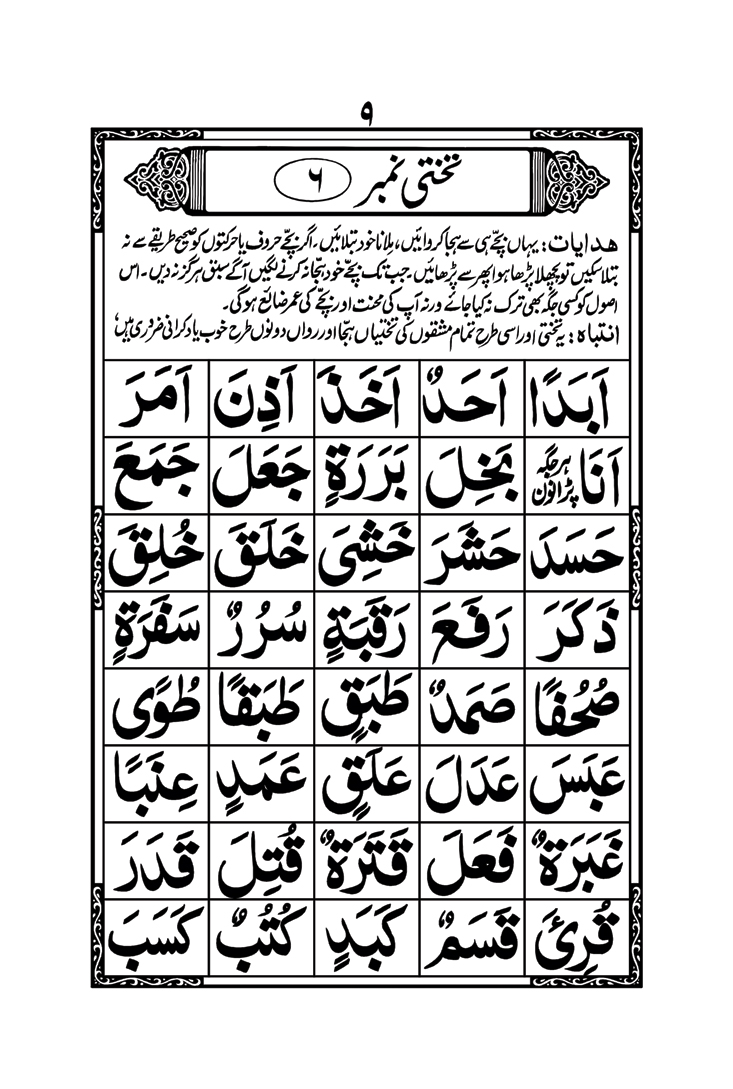 ۹
تختی نمبر ۶
ھدایات: یہاں بچّے ہی سے ہجا کروائیں، ملانا خود بتلائیں۔ اگر بچّے حروف یا حرکتوں کو صحیح طریقے سے نہ
بتلا سکیں تو پچھلا پڑھا ہوا پھر سے پڑھائیں۔ جب تک بچّے خود ہجّا نہ کرنے لگیں آگے سبق ہرگز نہ دیں۔ اس
اصول کو کسی جگہ بھی ترک نہ کیا جائے ورنہ آپ کی محنت اور بچّے کی عمر ضائع ہوگی۔
انتباہ: یہ تختی اور اسی طرح تمام مشقوں کی تختیاں ہجّا اور رواں دونوں طرح خوب یاد کرانی ضروری ہیں
اَبَدًا اَحَدٌ اَخَذَ اَذِنَ اَمَرَ
اَنَا ہر جگہ پڑا نُون بَخِلَ بَرَرَةٍ جَعَلَ جَمَعَ
حَسَدَ حَشَرَ خَشِیَ خَلَقَ خُلِقَ
ذَکَرَ رَفَعَ رَقَبَةٍ سُرُرٌ سَفَرَةٍ
صُحُفًا صَمَدٌ طَبَقٍ طَبَقًا طُوًی
عَبَسَ عَدَلَ عَلَقٍ عَمَدٍ عِنَبًا
غَبَرَةٌ فَعَلَ قَتَرَةٌ قُتِلَ قَدَرَ
قُرِئَ قَسَمٌ کَبَدٍ کُتُبٌ کَسَبَ